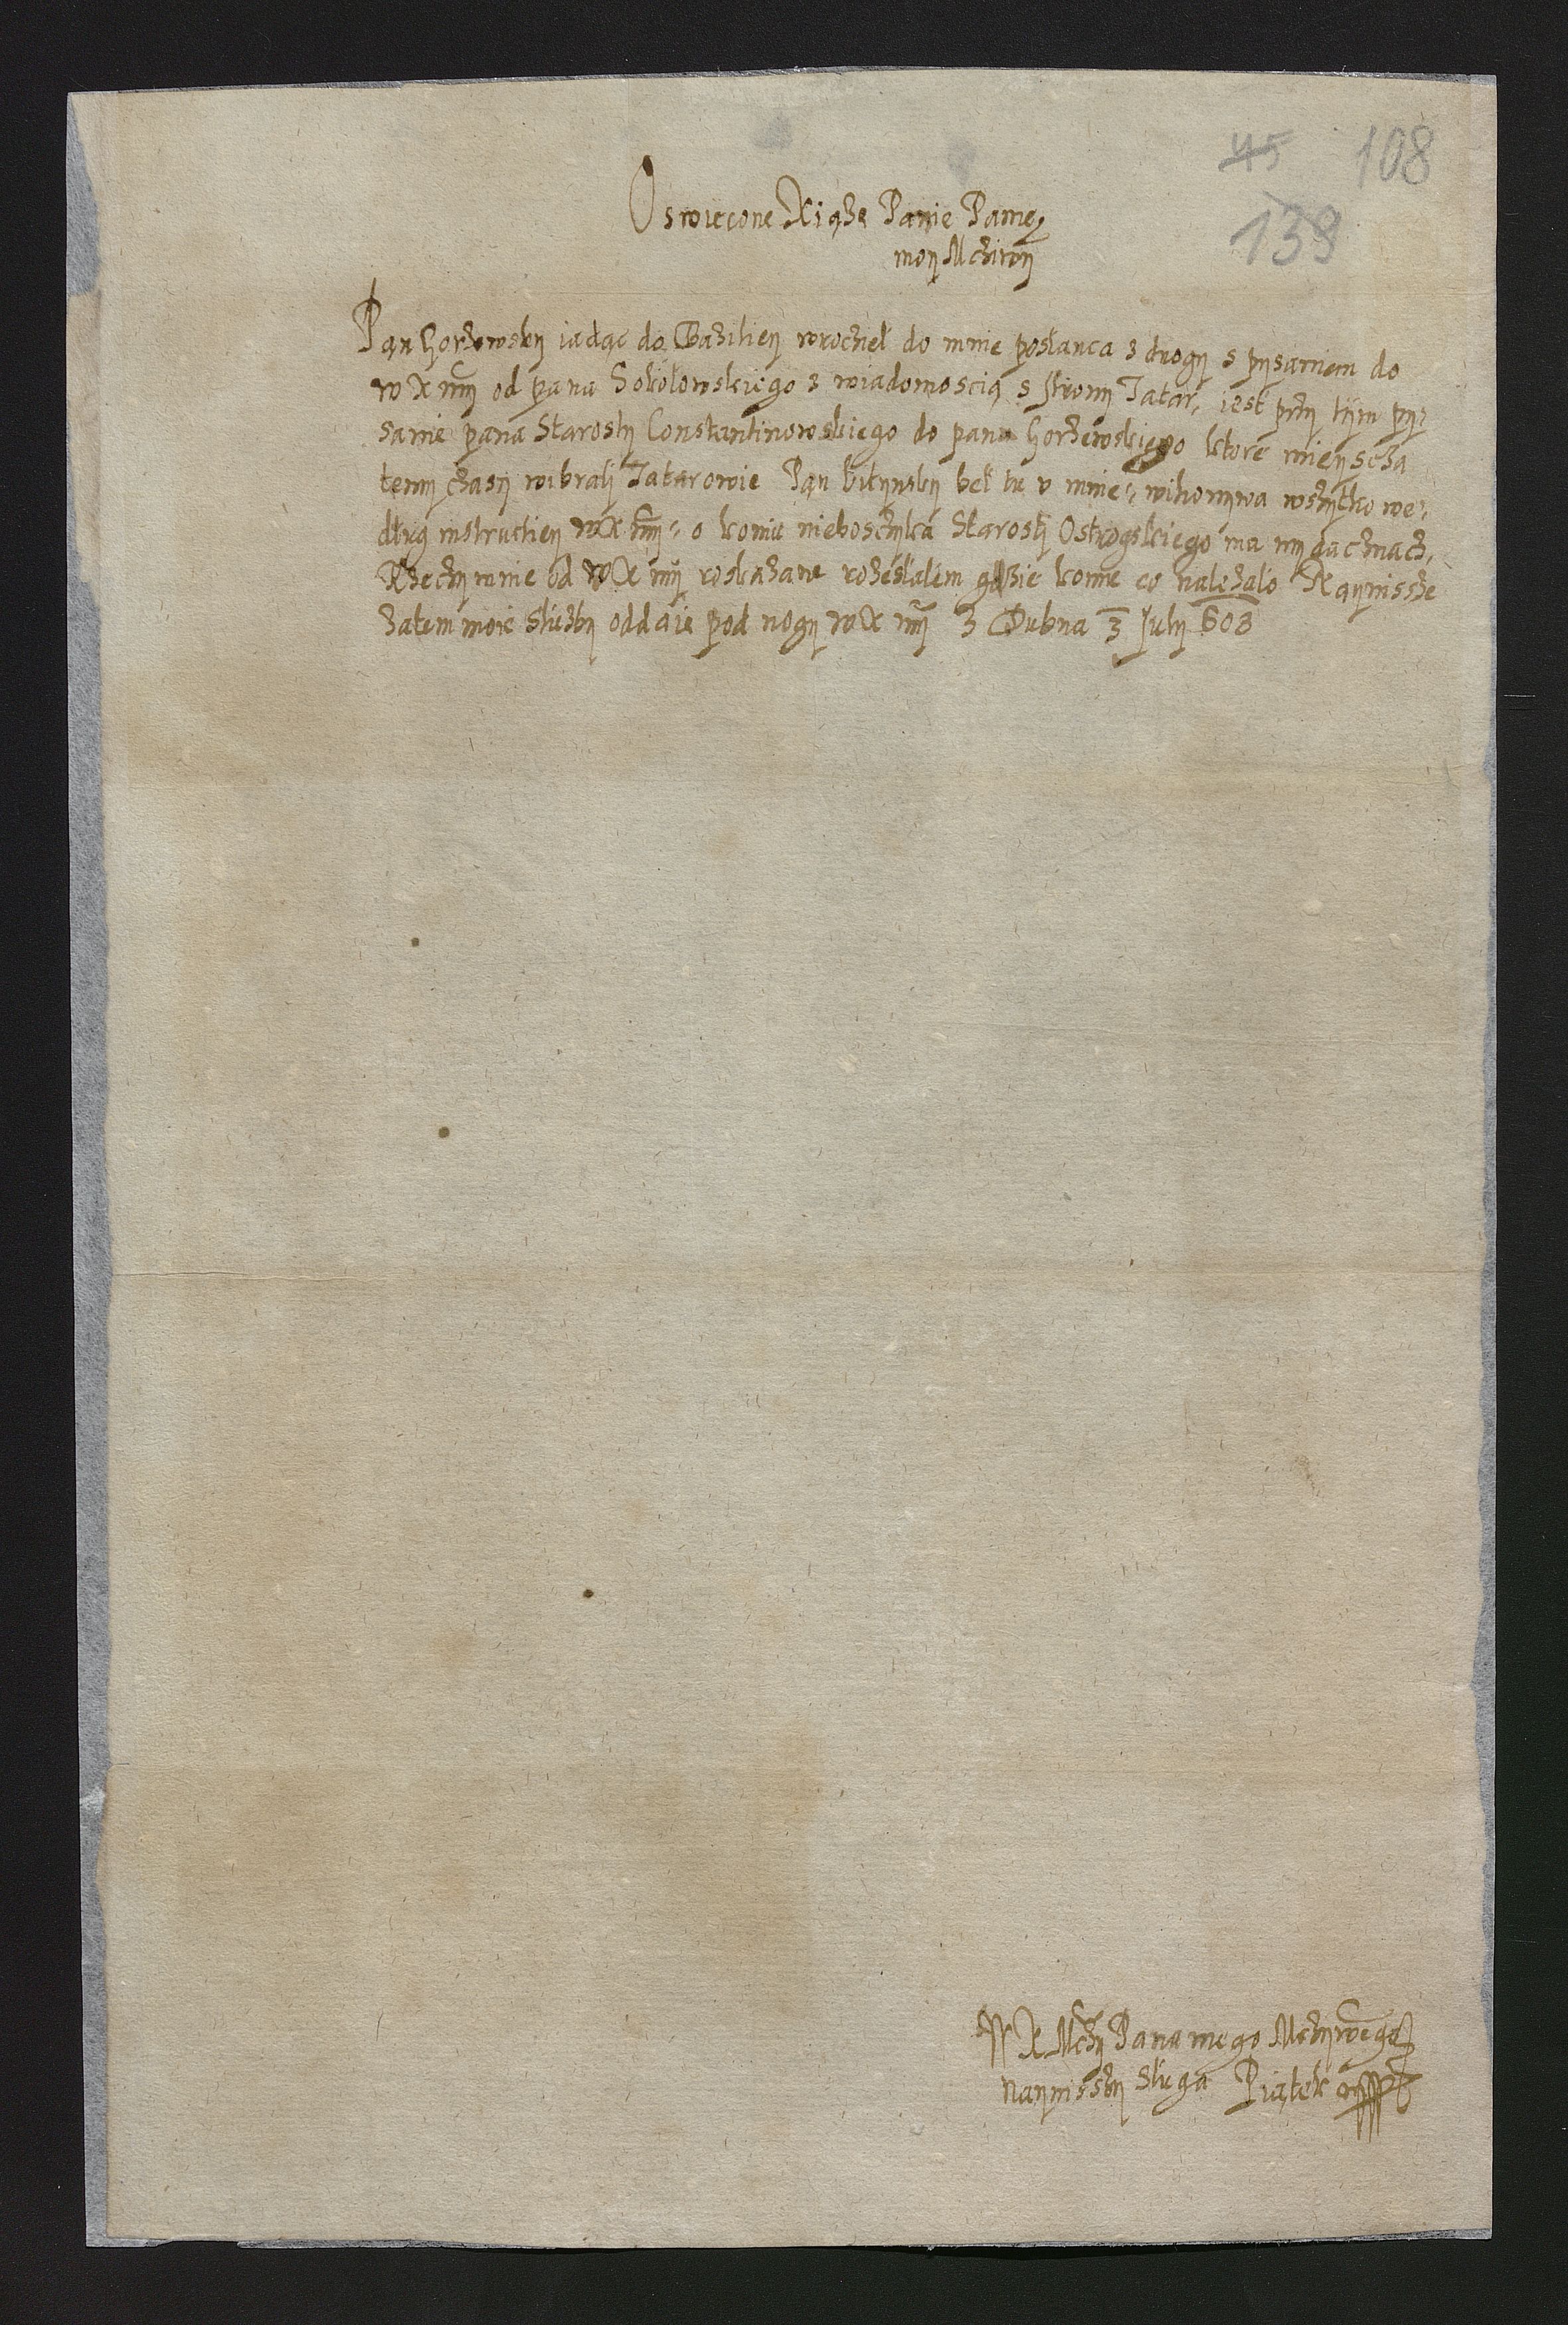 45 108
139
Oswiecone Xiąże Panie Panie
moy Mcziwy
Pan Gorzewsky iadąc do Baziliey wrocżeł do mnie posłanca z drogy s pysaniem do
w X my od pana Sokołowskiego z wiadomoscią s strony Tatar, iest przy tym py-
sanie pana Starosty Constantinowskiego do pana Gorzewskiego ktore mieyscza
temy czasy wibraly Tatarowie Pan bitynsky beł tu v mnie, wikonywa wszytko we-
dług instructiey w X my, o koniu nieboszczyka Starosty Ostrogskiego ma
Rzeczy mnie od w X my roskazane rozesłalem gdzie komu co nalezalo Naynissze
zatem moie służby oddaie pod nogy w X my z Dubna 3 July 608
W X Mczy Pana mego Mcżywego
naynisszy Sługa Piątek